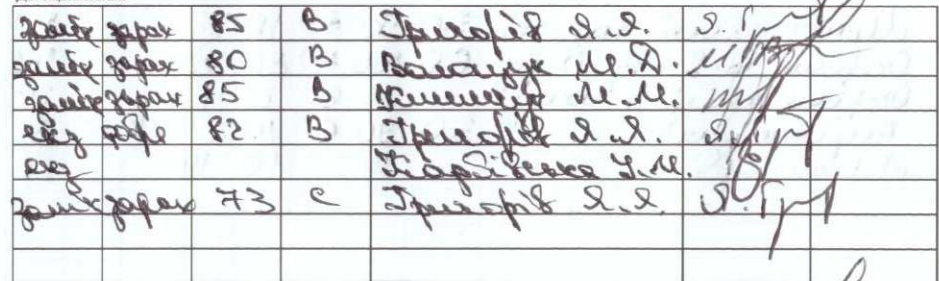 залік зарах 85 B Григорів Я.Я.
залік зарах 80 B М.Д.
залік зарах 85 B М.М.
екз добре 82 B Григорів Я.Я.
екз Карбівська У.М.
залік зарах 73 C Григорів Я.Я.